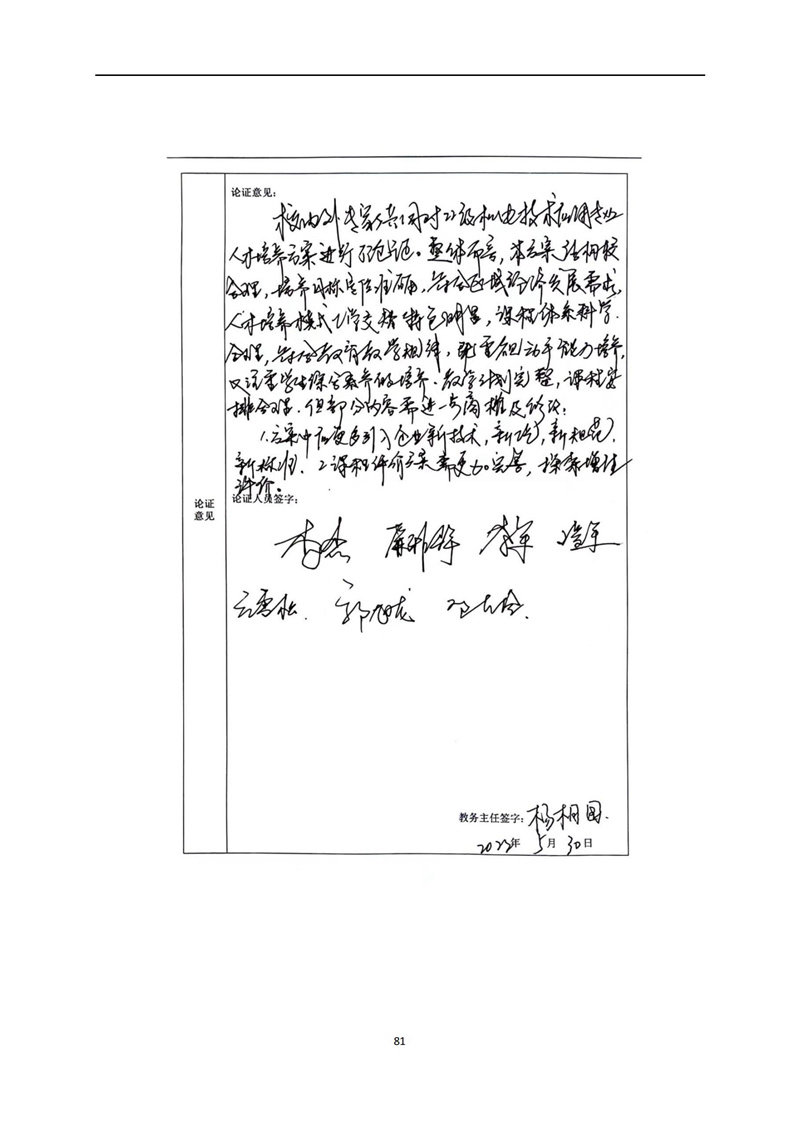 论证意见:
校内外专家共同对22级机电技术应用专业
人才培养方案进行了论证。整体而言,本方案结构较
合理,培养目标定位准确,符合区域经济发展需求,
人才培养模式工学交替特色明显,课程体系科学
合理,符合教育教学规律,既重视动手能力培养,
又注重学生综合素养的培养。教学计划完整,课程安
排合理。但部分内容需进一步商榷及修改:
1.方案中应更多引入企业新技术,新工艺,新规范,
新标准。2.课程评价方案需更加完善,探索增值
评价。
论证
意见
论证人员签字:
李杰
郭成龙
教务主任签字:杨相国.
2022年5月30日
81